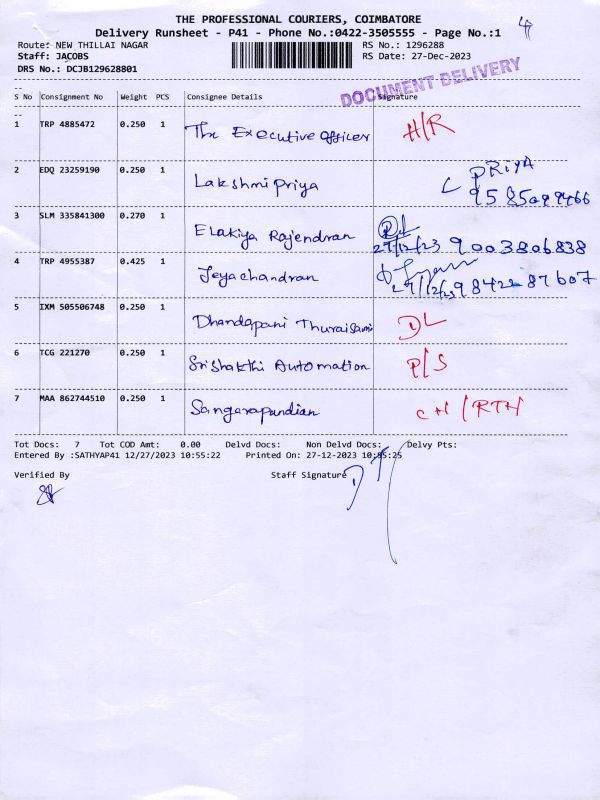 THE PROFESSIONAL COURIERS, COIMBATORE
Delivery Runsheet - P41 - Phone No.:0422-3505555 - Page No.:1
4
Route: NEW THILLAI NAGAR RS No.: 1296288
Staff: JACOBS RS Date: 27-Dec-2023
DRS No.: DCJB129628801
DOCUMENT DELIVERY
S No Consignment No Weight PCS Consignee Details Signature
1 TRP 4885472 0.250 1 The Executive officer H/R
2 EDQ 23259190 0.250 1 Lakshmi Priya PRIYA
3 SLM 335841300 0.270 1 Elakiya Rajendran DL
27/12/23 9003806838
4 TRP 4955387 0.425 1 Jeyachandran
27/12/23 98422-87607
5 IXM 505506748 0.250 1 Dhandapani Thuraisami DL
6 TCG 221270 0.250 1 Srishakthi Automation P/S
7 MAA 862744510 0.250 1 Sangarapandian CH/RTH
Tot Docs: 7 Tot COD Amt: 0.00 Delvd Docs: Non Delvd Docs: Delvy Pts:
Entered By :SATHYAP41 12/27/2023 10:55:22 Printed On: 27-12-2023 10:55:25
Verified By Staff Signature